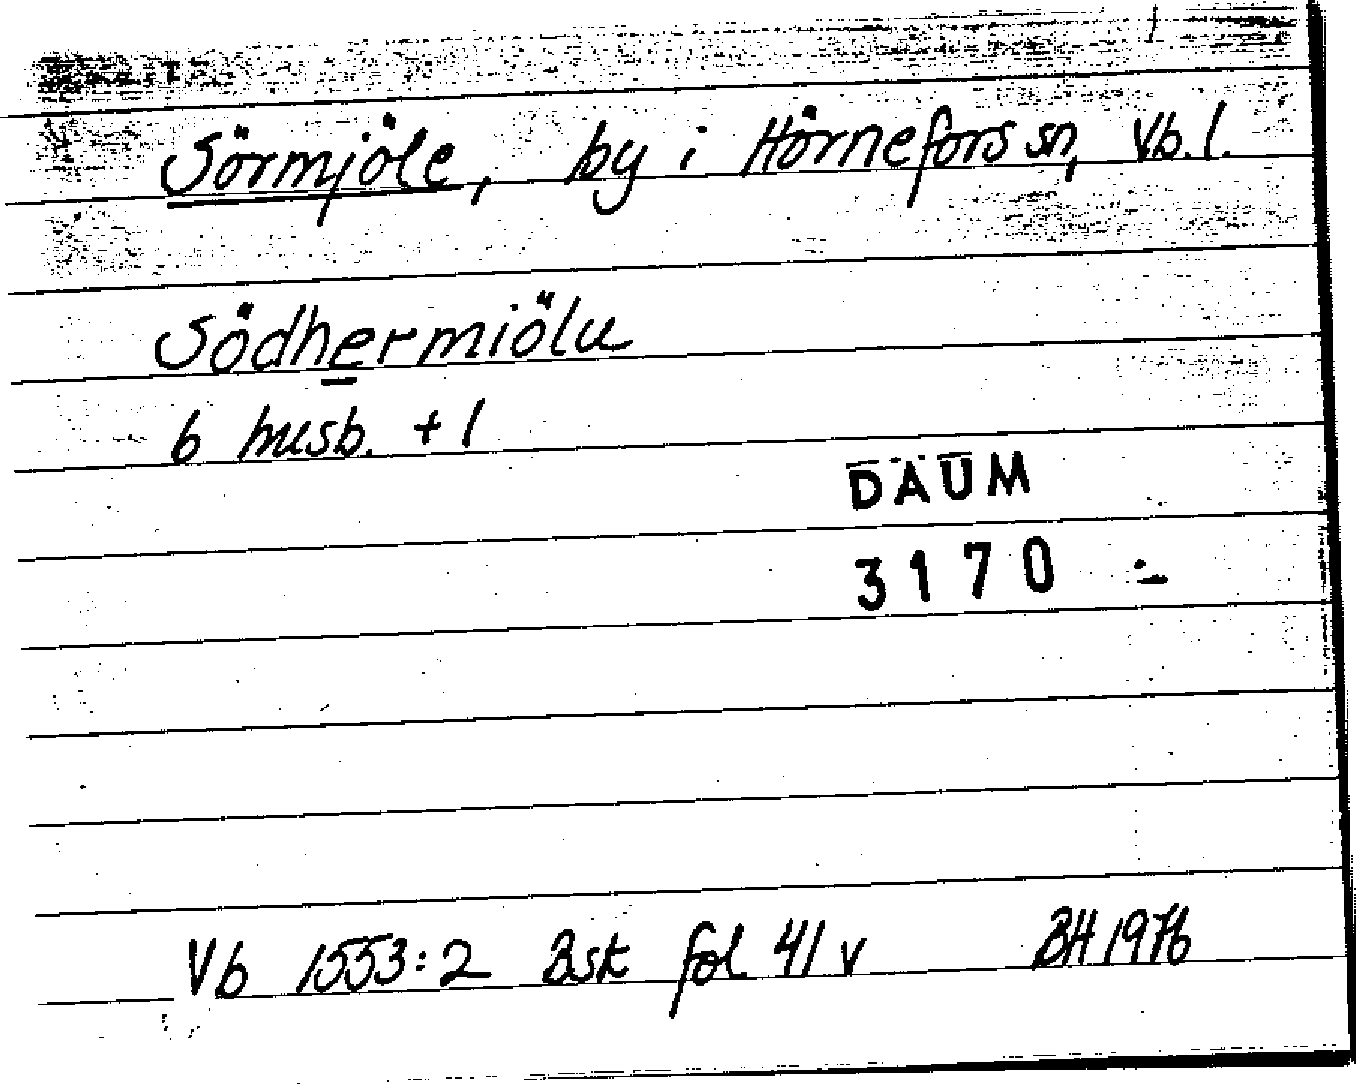 Sörmjöle, by i Hörnefors sn, Vb. l.
Södhermiölu
6 husb. + 1
DAUM
3170
Vb 1553:2 Bsk fol 41 v BH 1976